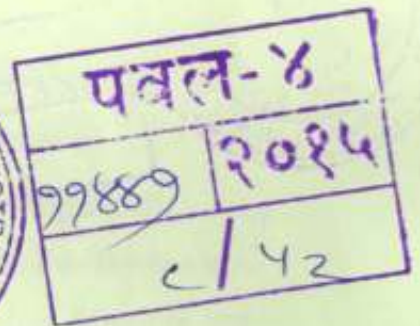 पवल-४
११४४१ २०१५
८/५२